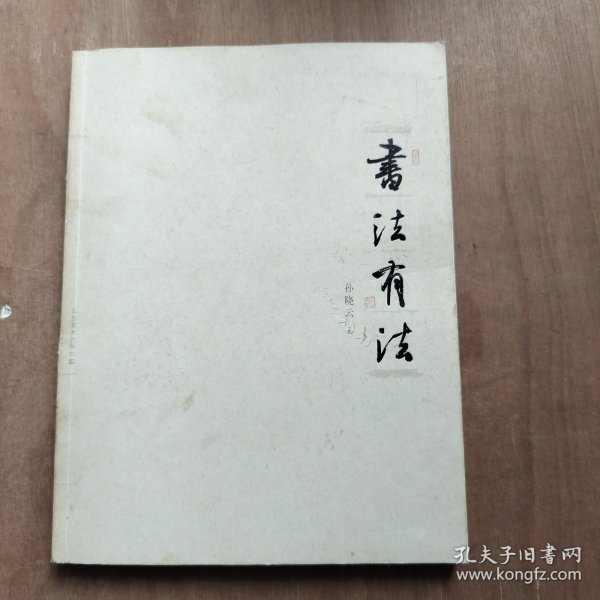 書法有法
孙晓云
孔夫子旧书网
www.kongfz.com